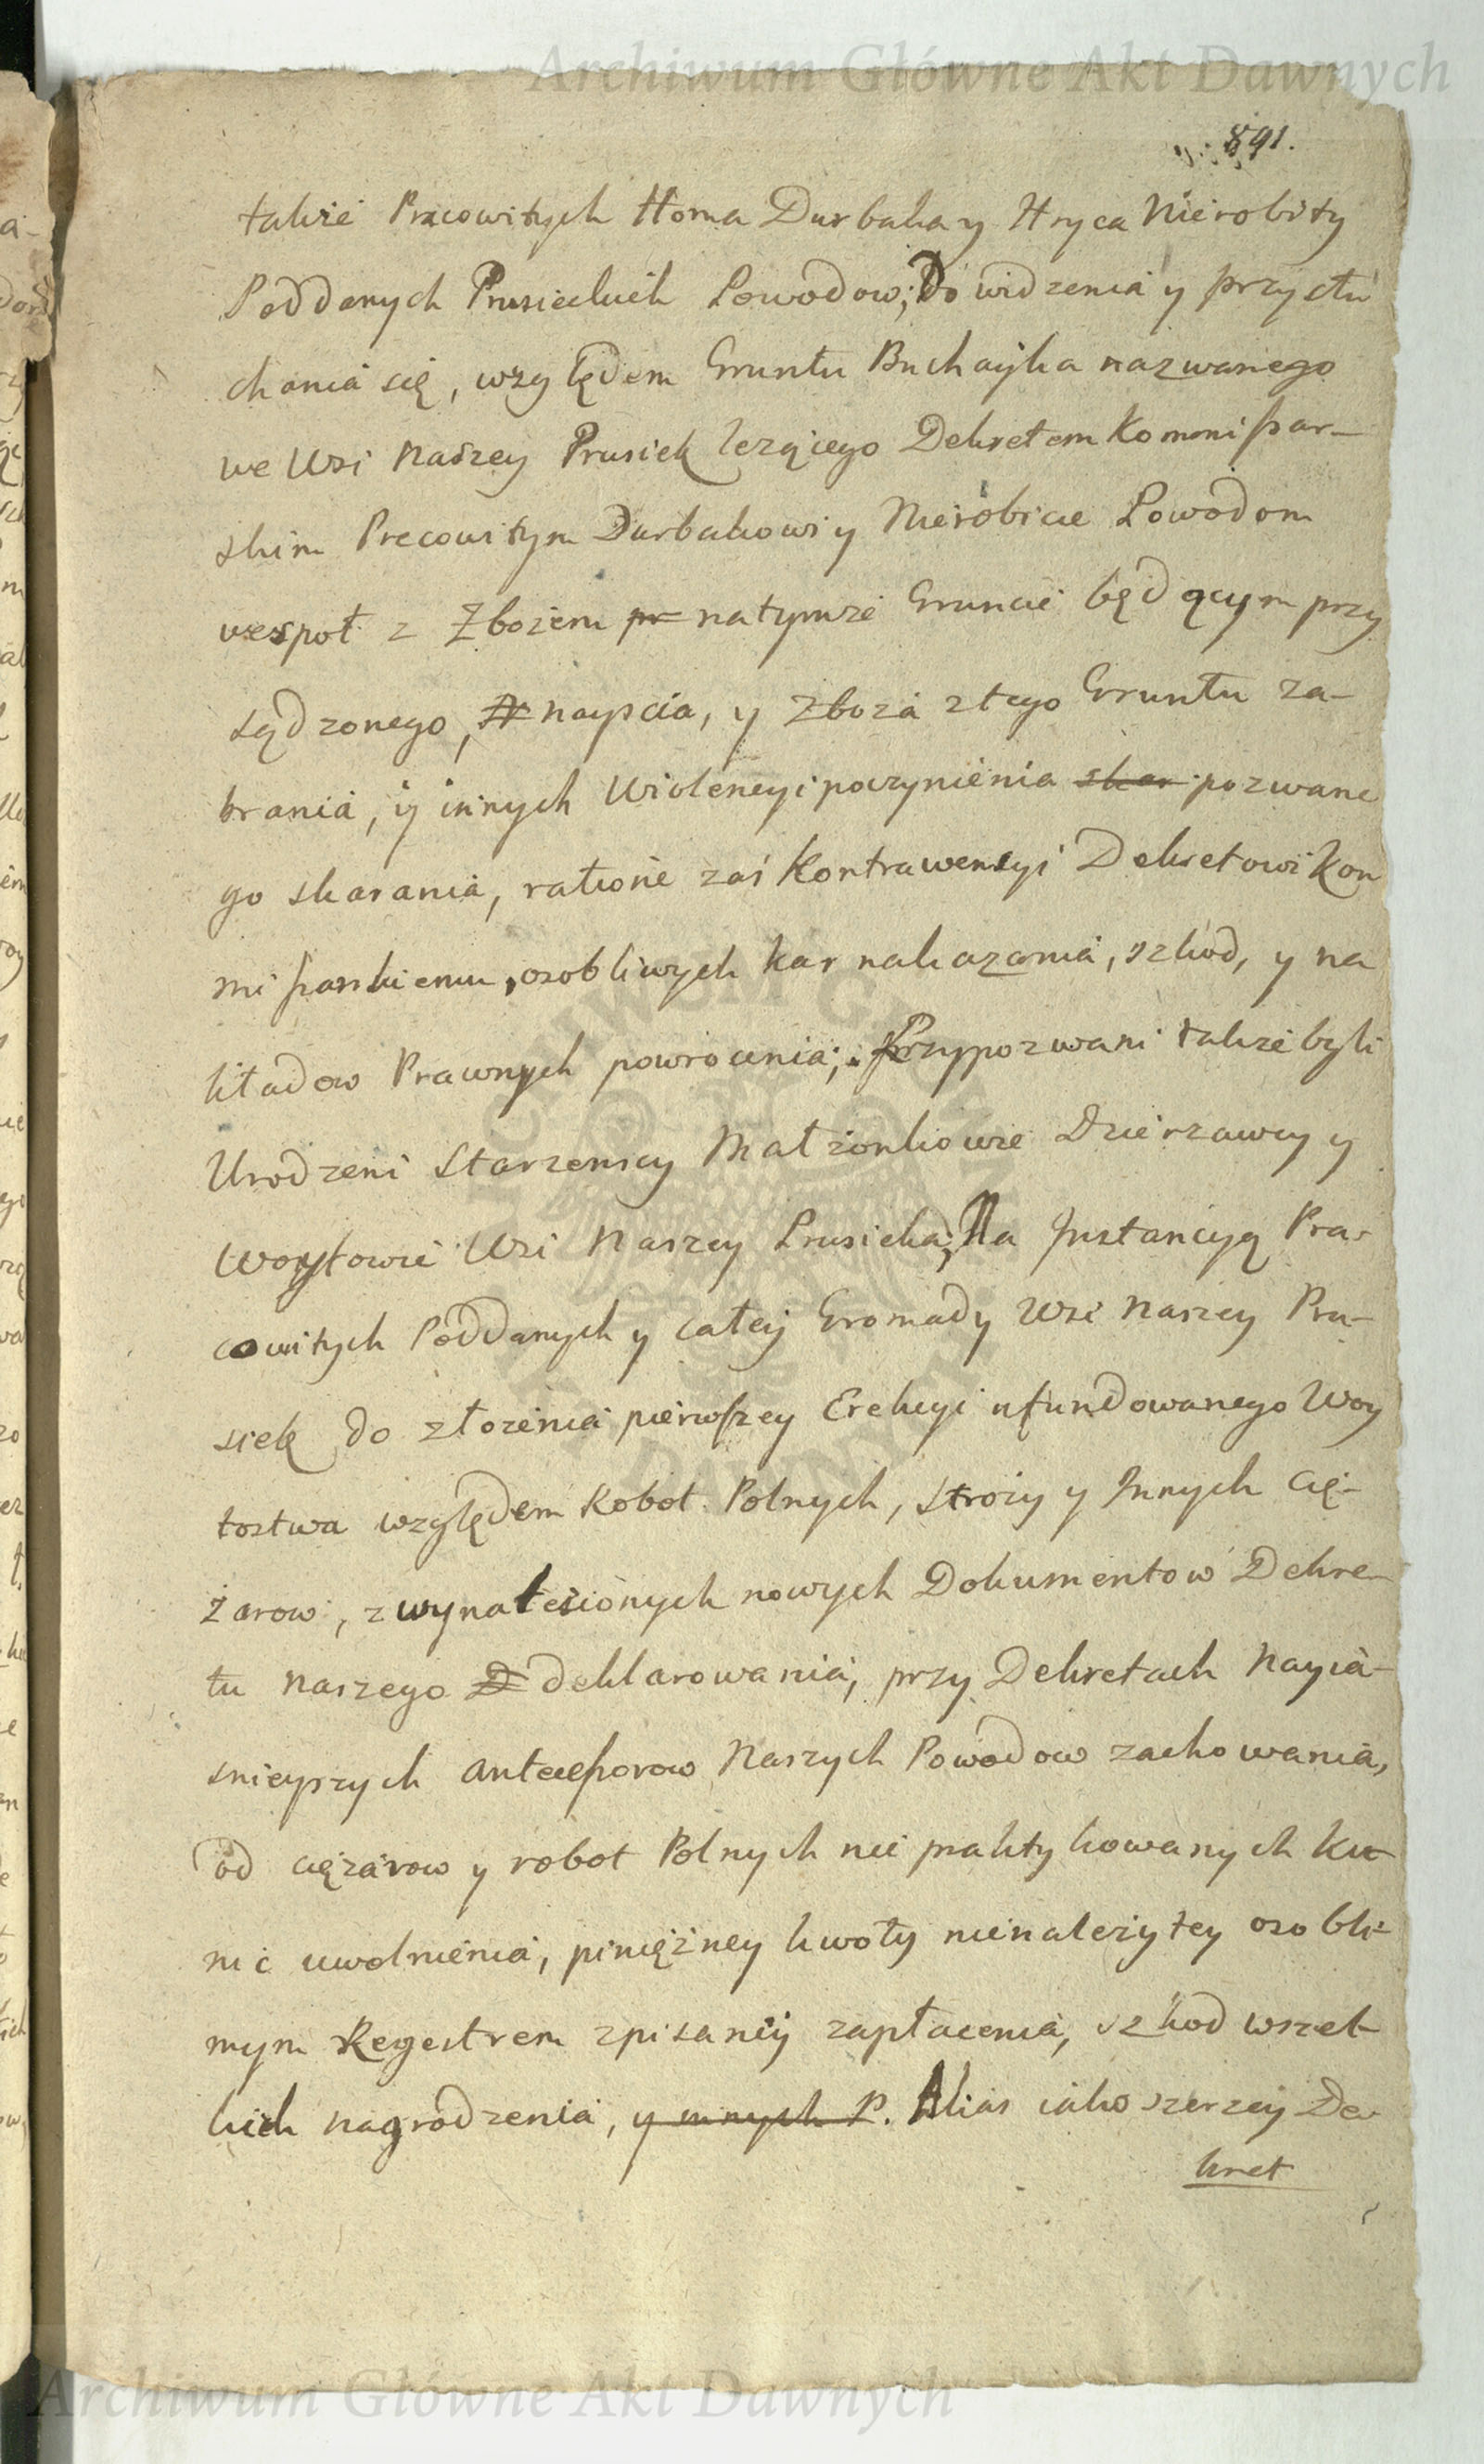 Archiwum Główne Akt Dawnych
891.
także Pracowitych Homa Durbaka y Hryca Nierobity
Poddanych Prusieckich Powodow; Do widzenia y przysłu
chania się, względem Gruntu Buchayka nazwanego
we Wsi Naszey Prusiek leząiego Dekretem Kommissar-
skim Pracowitym Durbakowi y Nierobicie Powodom
wespoł z Zbożem pr natymże Gruncie będącym przy
sądzonego, nayscia, y Zboża ztego Gruntu za-
brania, y innych Violencyi poczynienia skar pozwane
go skarania, ratione zaś Kontrawencyi Dekretowi Kom
missarskiemu, osobliwych kar nakazania, szkod, y na
kładow Prawnych powrocenia; Przypozwani także byli
Urodzeni Starzenscy Małżonkowie Dzierzawcy y
Woytowie Wsi Naszey Prusieka; Na Instancyą Pra-
cowitych Poddanych y całey Gromady Wsi Naszey Pru-
siek do złożenia pierwszey Erekcyi ufundowanego Woy
tostwa względem Robot Polnych, Stroży y Innych Cię-
żarow, z wynalesionych nowych Dokumentow Dekre-
tu Naszego D deklarowania, przy Dekretach Nayia-
snieyszych Antecessorow Naszych Powodow zachowania,
od ciężarow y robot Polnych nie praktykowanych ku-
nic uwolnienia, pinięzney kwoty nienależytey osobli-
mym Regestrem zpisaney zapłacenia, szkod wszel-
kich nagrodzenia, y innych P. Alias iako szerzey De-
kret
Archiwum Główne Akt Dawnych